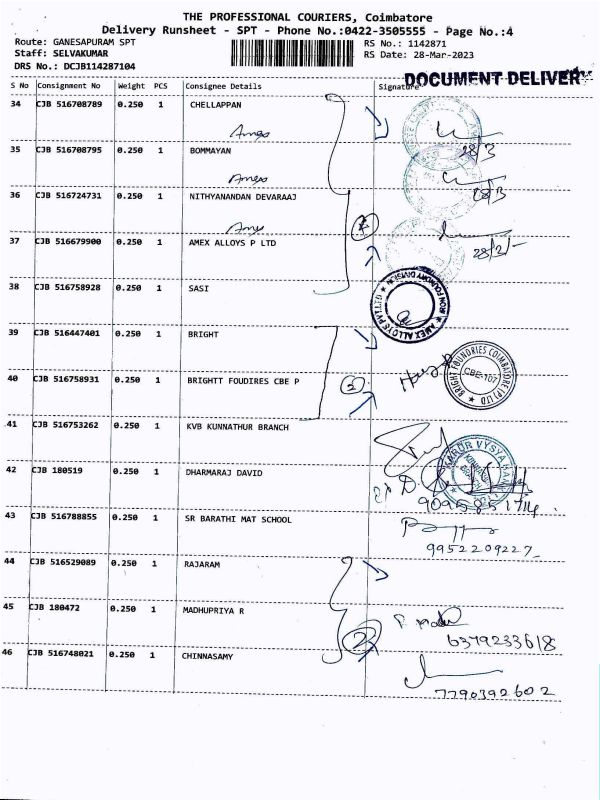 THE PROFESSIONAL COURIERS, Coimbatore
Delivery Runsheet - SPT - Phone No.:0422-3505555 - Page No.:4
Route: GANESAPURAM SPT RS No.: 1142871
Staff: SELVAKUMAR RS Date: 28-Mar-2023
DRS No.: DCJB114287104
DOCUMENT DELIVERY
S No Consignment No Weight PCS Consignee Details Signature
34 CJB 516708789 0.250 1 CHELLAPPAN
28/3
35 CJB 516708795 0.250 1 BOMMAYAN
28/3
36 CJB 516724731 0.250 1 NITHYANANDAN DEVARAAJ
37 CJB 516679900 0.250 1 AMEX ALLOYS P LTD
38 CJB 516758928 0.250 1 SASI
AMEX ALLOYS PVT LTD ★ IRON FOUNDRY DIVISION ★
39 CJB 516447401 0.250 1 BRIGHT
40 CJB 516758931 0.250 1 BRIGHTT FOUDIRES CBE P
BRIGHT FOUNDRIES COIMBATORE (P) LTD ★
CBE-107
41 CJB 516753262 0.250 1 KVB KUNNATHUR BRANCH
KARUR VYSYA BANK
42 CJB 180519 0.250 1 DHARMARAJ DAVID
43 CJB 516788855 0.250 1 SR BARATHI MAT SCHOOL
9952209227
44 CJB 516529089 0.250 1 RAJARAM
45 CJB 180472 0.250 1 MADHUPRIYA R
2
6379233618
46 CJB 516748021 0.250 1 CHINNASAMY
7790392602